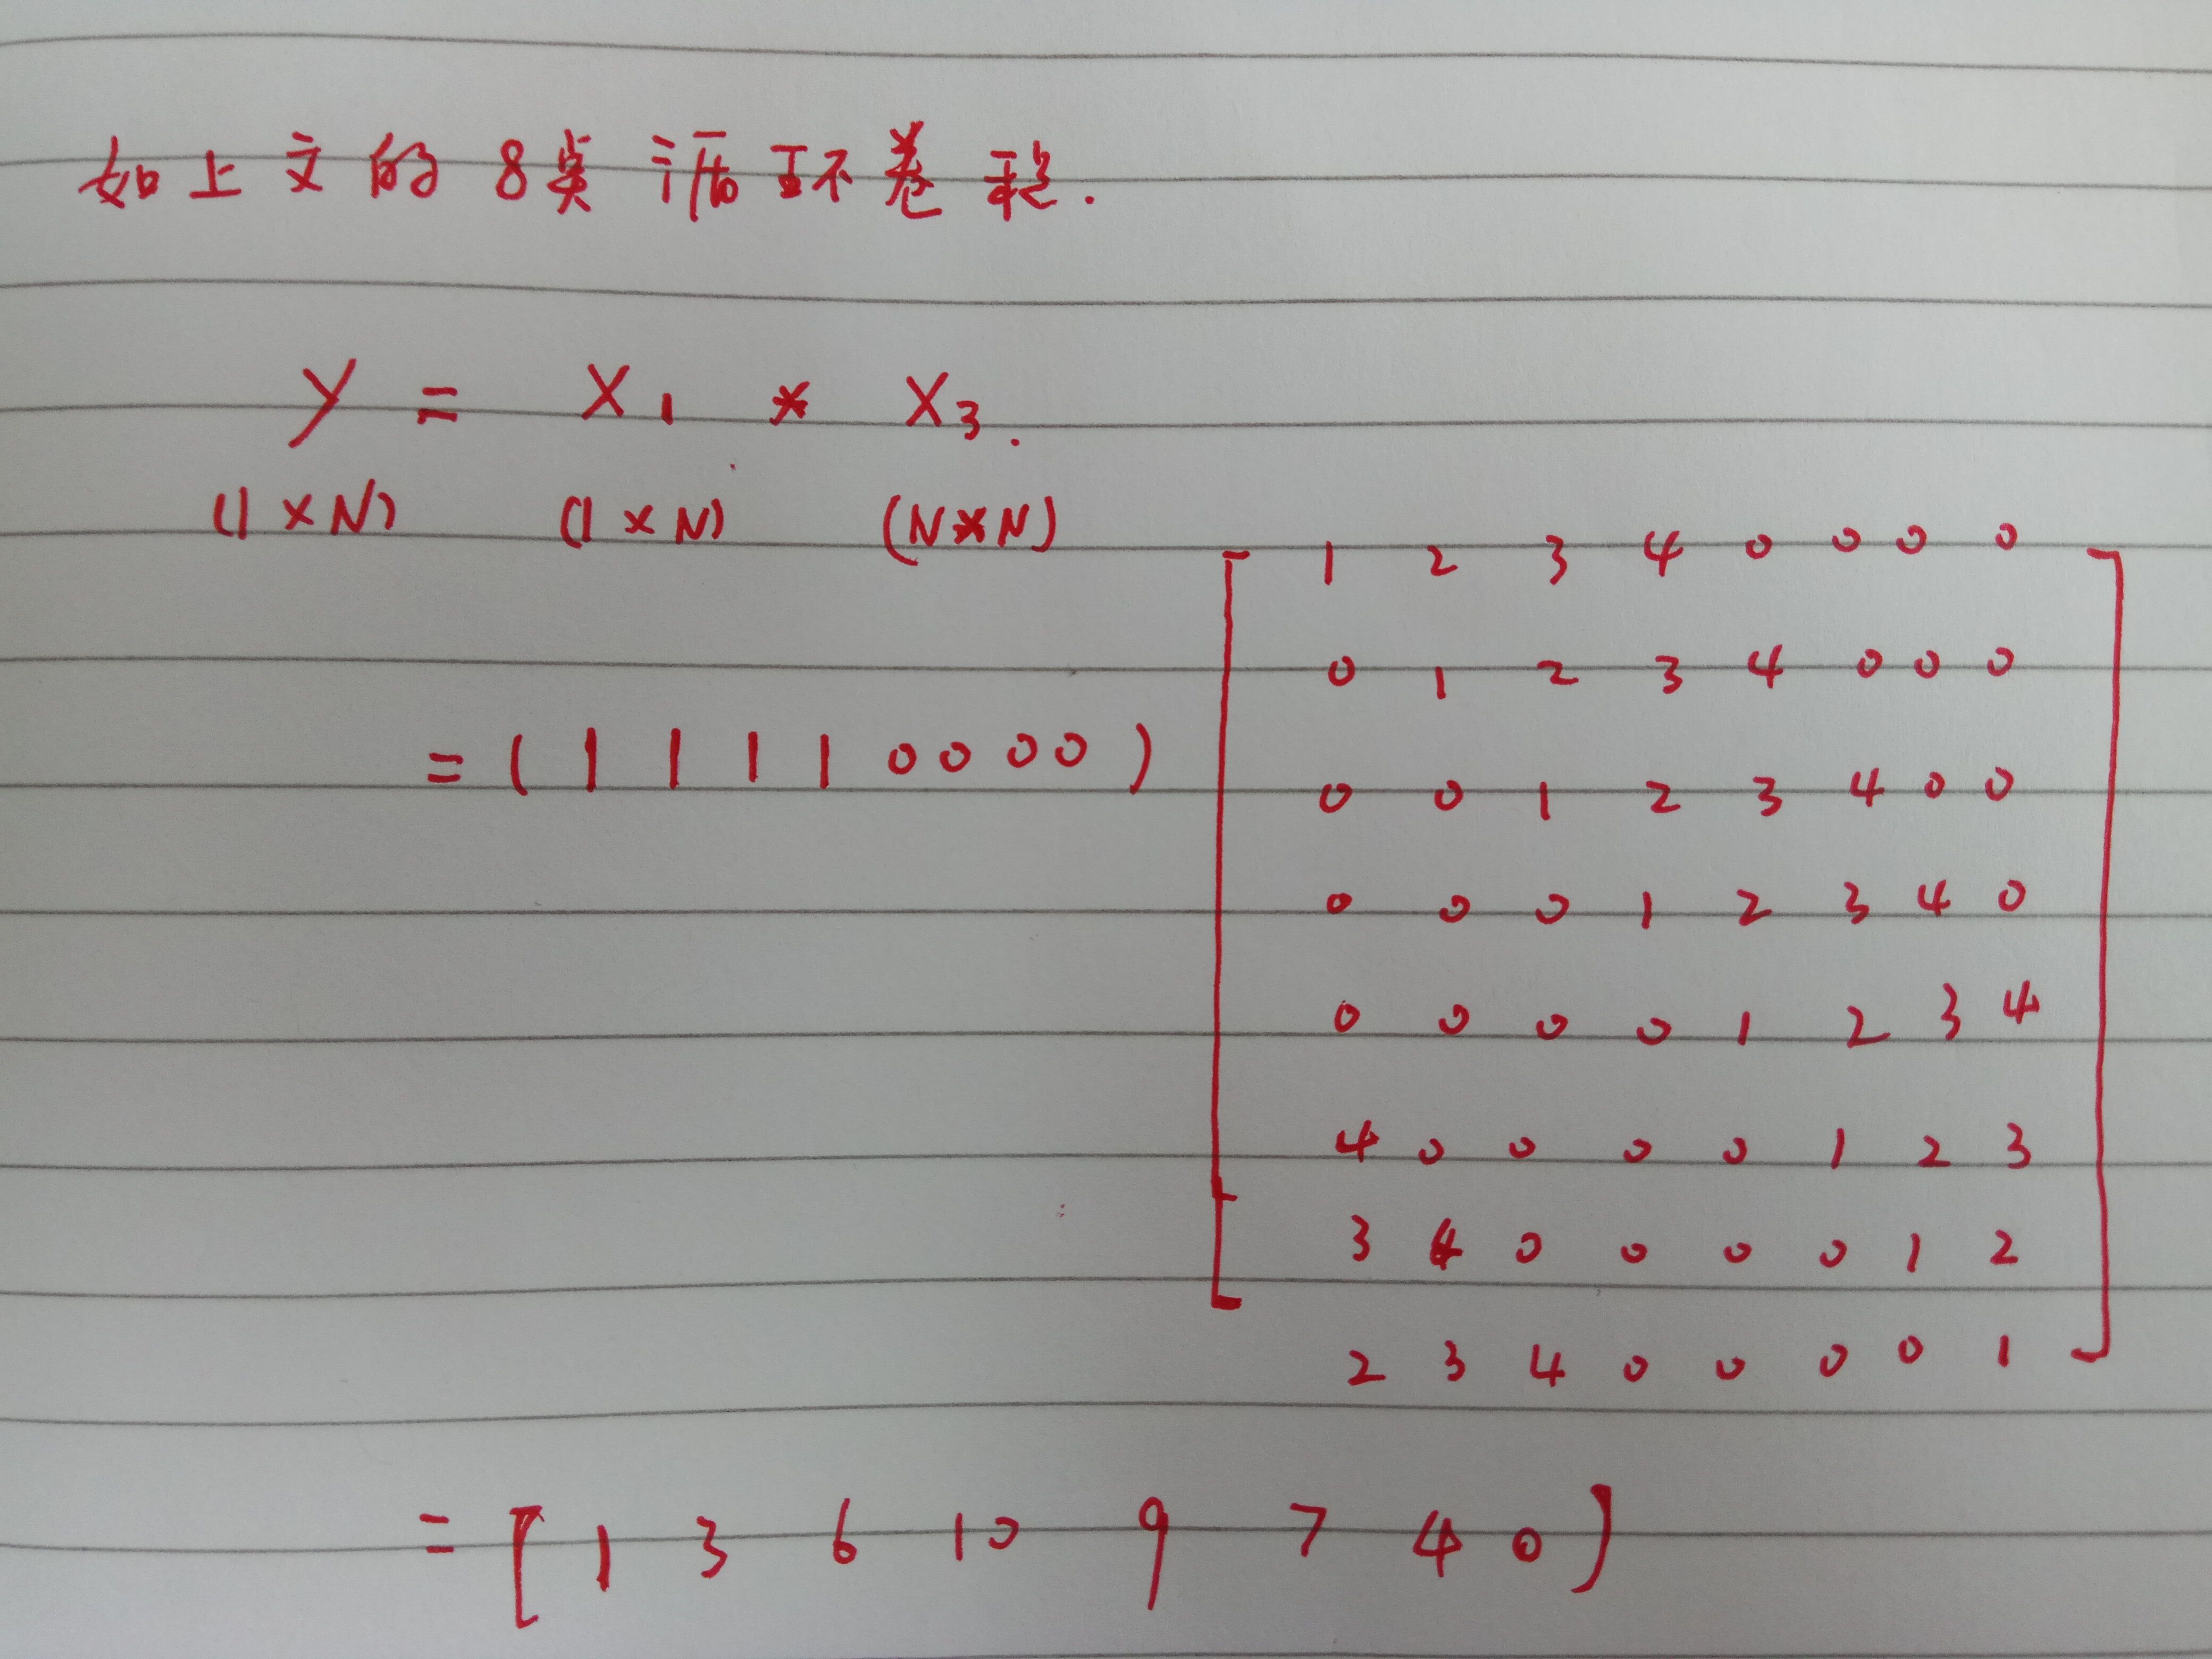 如上文的8点循环卷积.
y = X₁ * X₃.
(1×N) (1×N) (N*N)
= ( 1 1 1 1 0 0 0 0 )
[ 1 2 3 4 0 0 0 0 ]
0 1 2 3 4 0 0 0
0 0 1 2 3 4 0 0
0 0 0 1 2 3 4 0
0 0 0 0 1 2 3 4
4 0 0 0 0 1 2 3
3 4 0 0 0 0 1 2
2 3 4 0 0 0 0 1
= [ 1 3 6 10 9 7 4 0 ]